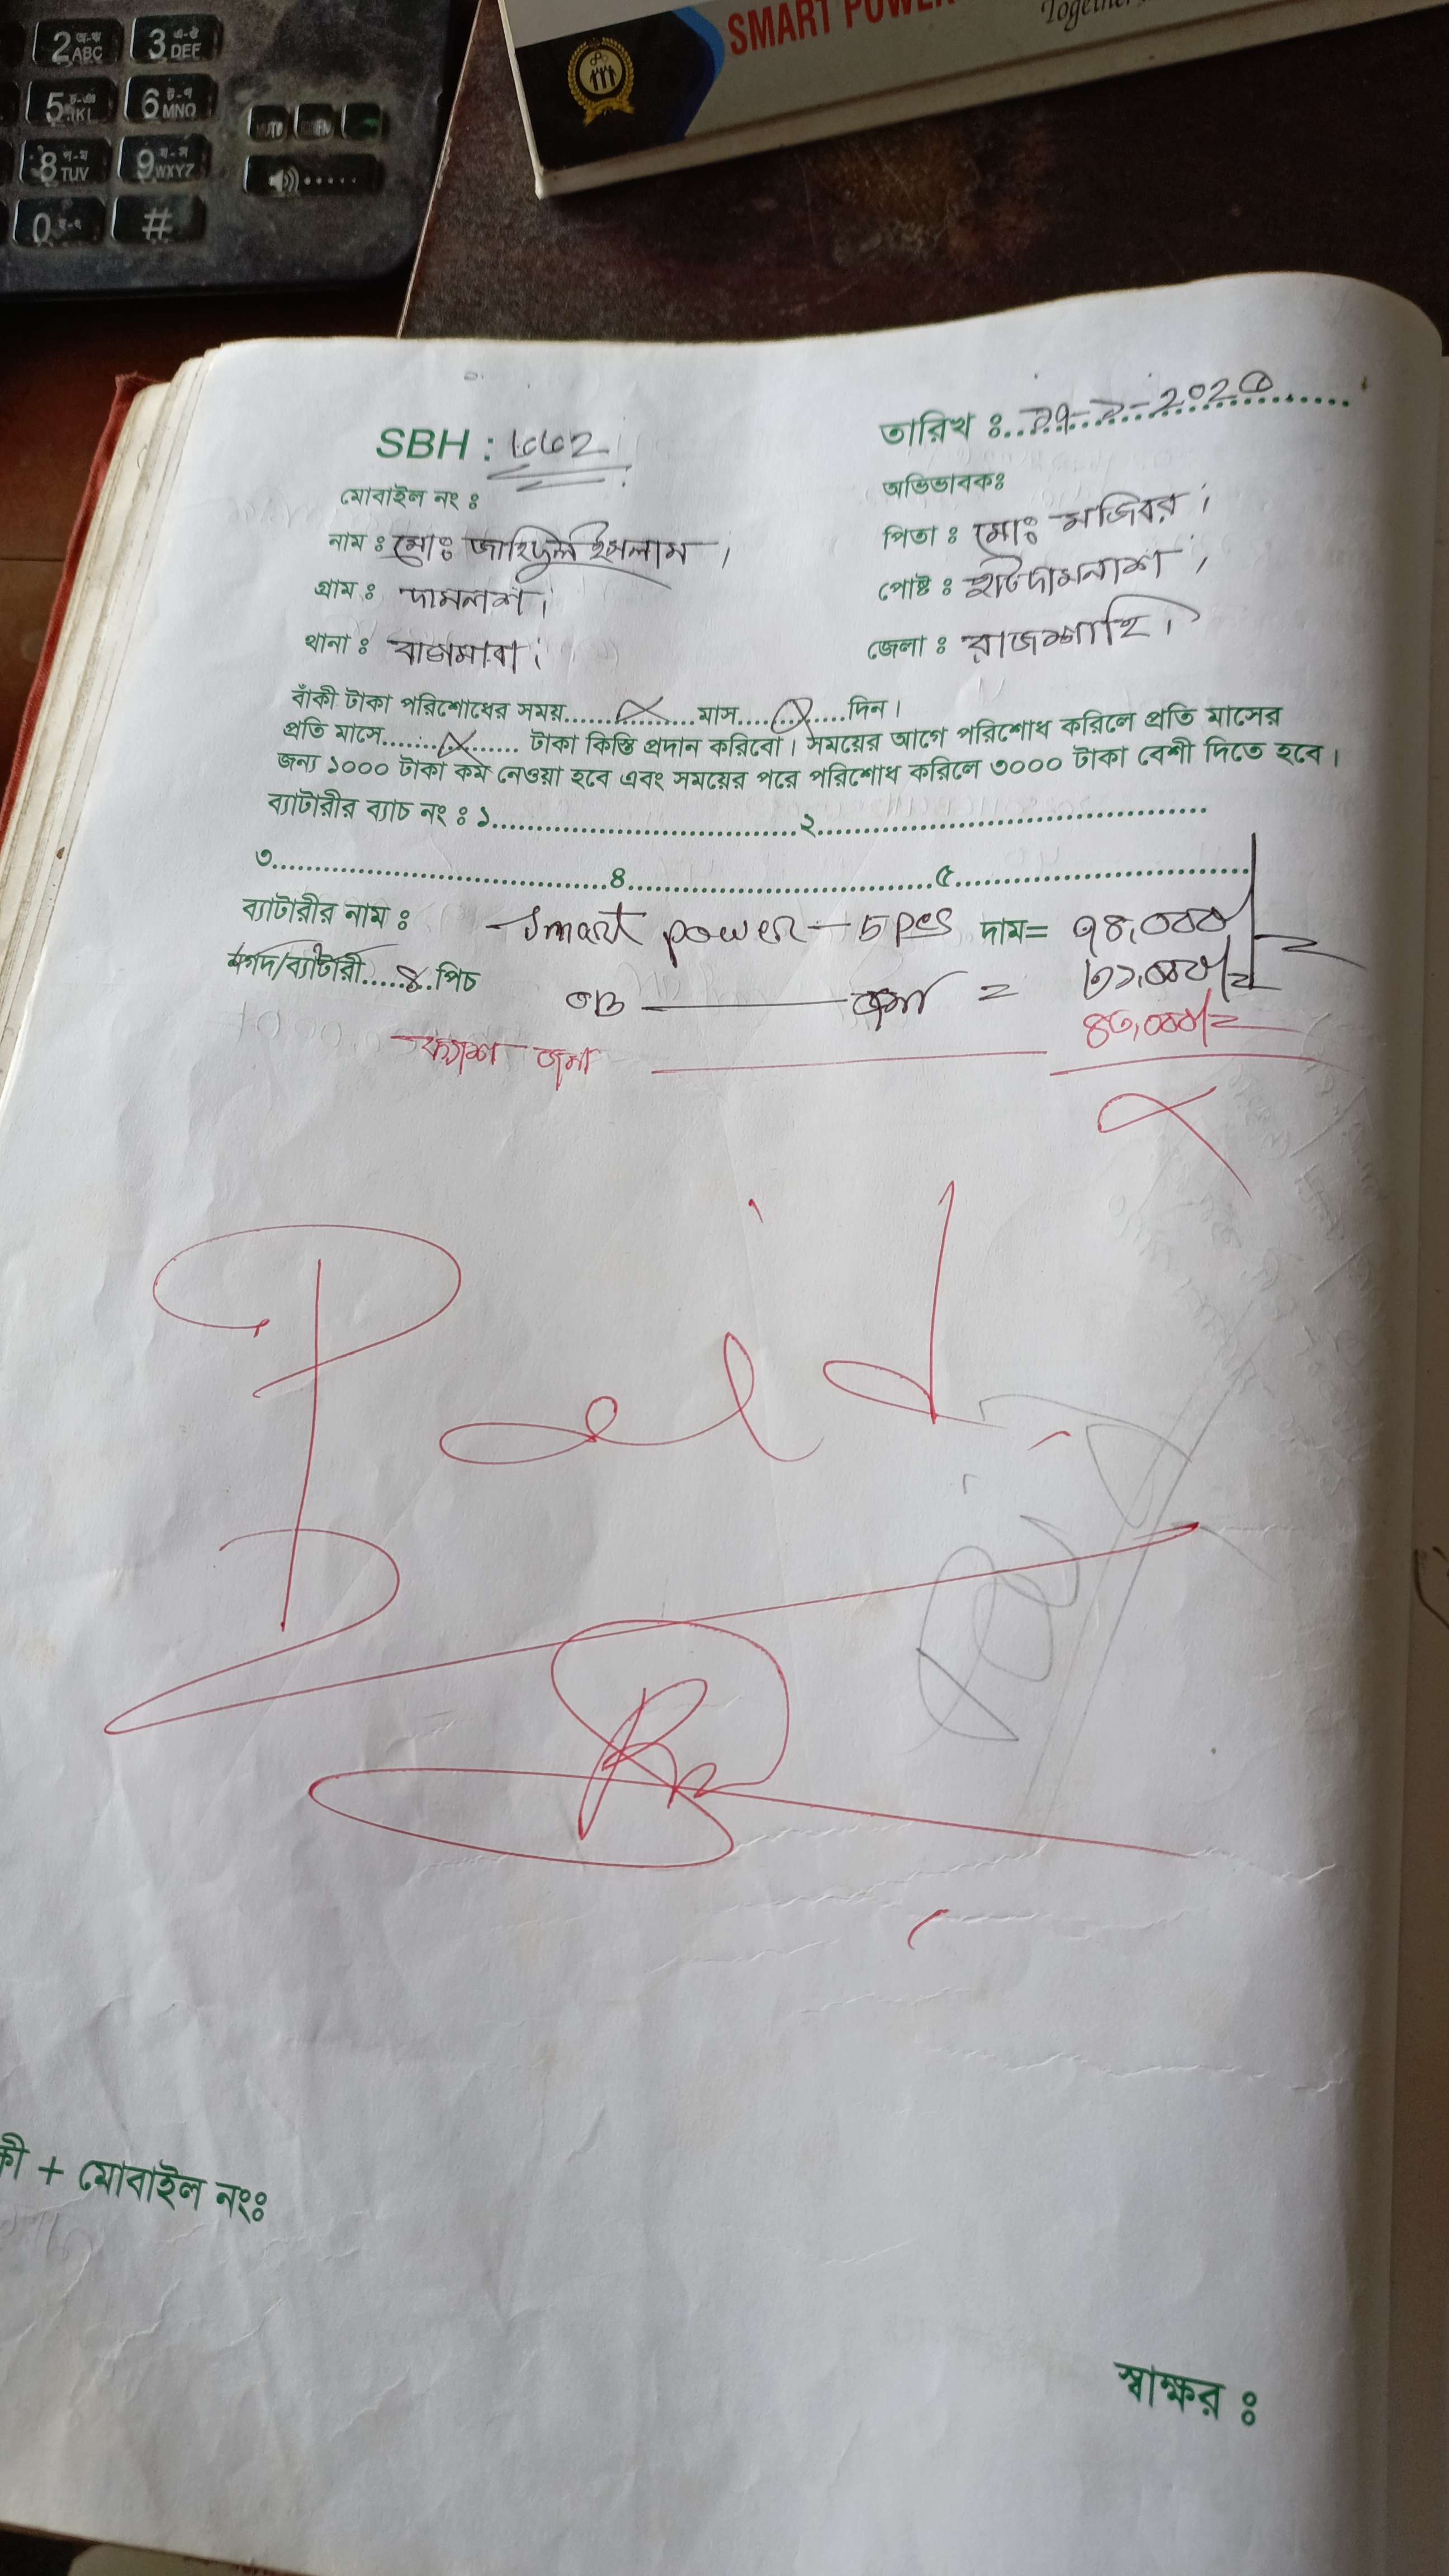 2 অ-ঋ ABC 3 এ-ঔ DEF
5 JKL 6 MNO
8 প-ম TUV 9 WXYZ
0 #
MUTE
SMART POWER
Together
SBH : ১৫৫২
তারিখ ঃ
মোবাইল নং ঃ
অভিভাবকঃ
নাম ঃ মোঃ জাহিদুল ইসলাম ।
পিতা ঃ মোঃ মজিবর ।
গ্রাম ঃ দামনাশ ।
পোষ্ট ঃ হাটদামনাশ ,
থানা ঃ বাগমারা ।
জেলা ঃ রাজশাহি ।
বাঁকী টাকা পরিশোধের সময়...............মাস............দিন ।
প্রতি মাসে............... টাকা কিস্তি প্রদান করিবো । সময়ের আগে পরিশোধ করিলে প্রতি মাসের
জন্য ১০০০ টাকা কম নেওয়া হবে এবং সময়ের পরে পরিশোধ করিলে ৩০০০ টাকা বেশী দিতে হবে ।
ব্যাটারীর ব্যাচ নং ঃ ১..............................২..............................
৩..............................৪..............................৫..............................
ব্যাটারীর নাম ঃ Smart power - 5 pcs দাম= ৭৪,০০০/=
নগদ/ব্যাটারী.....৪.পিচ
OB জমা = ৩১,০০০/=
ক্যাশ জমা ৪৩,০০০/=
Paid
Paid
কী + মোবাইল নংঃ
স্বাক্ষর ঃ